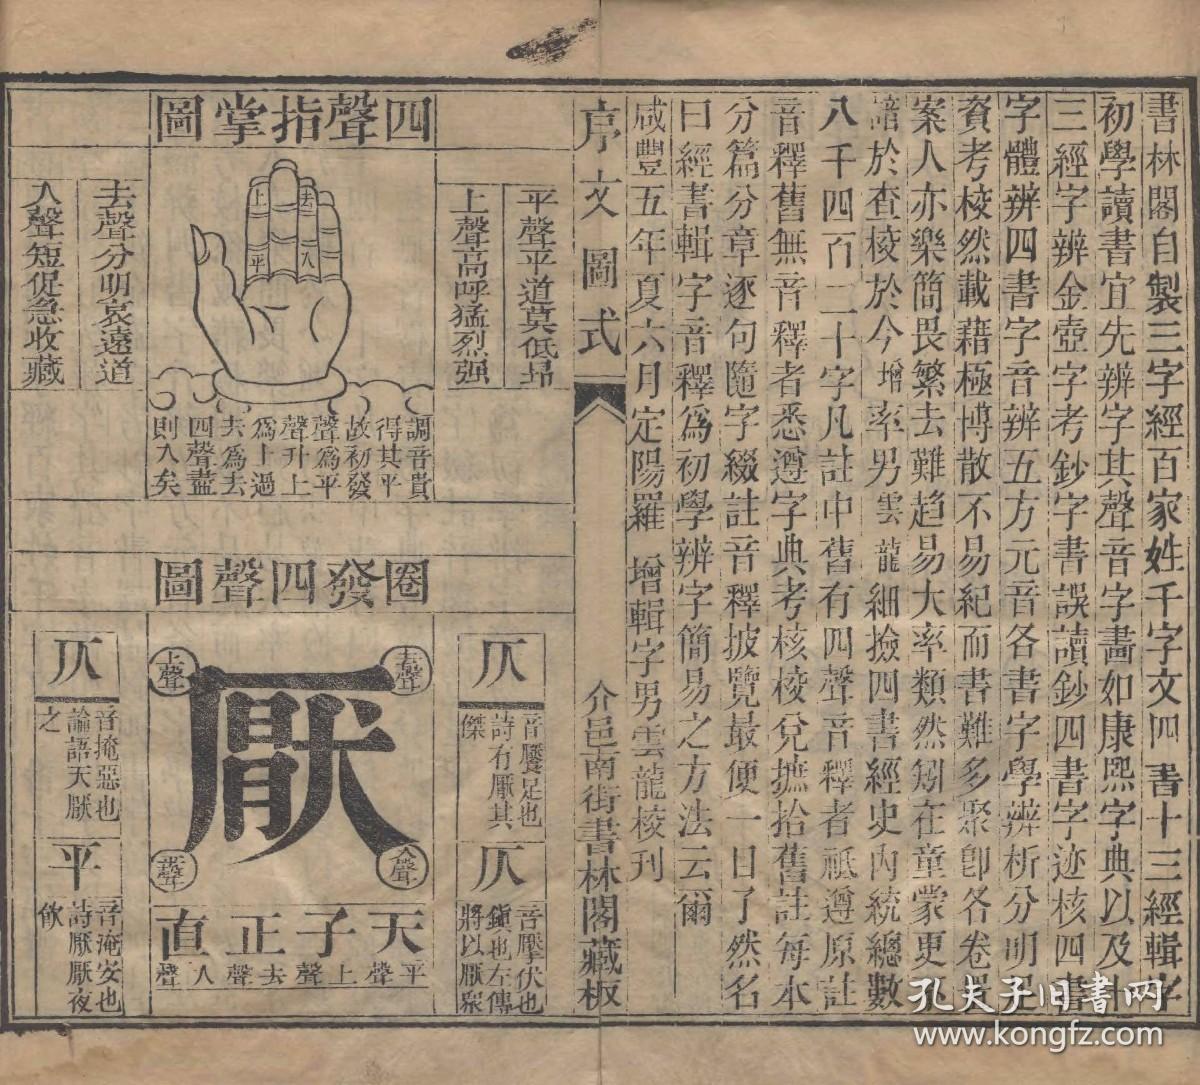 書林閣自製三字經百家姓千字文四書十三經輯字
初學讀書宜先辨字其聲音字畫如康熙字典以及十
三經字辨金壺字考鈔字書誤讀鈔四書字迹核四書
字體辨四書字音辨五方元音各書字學辨析分明足
資考校然載藉極博散不易紀而書難多聚卽各卷具
案人亦樂簡畏繁去難趋易大率類然矧在童蒙更不
諳於查校於今增率男雲龍細撿四書經史內統總數
八千四百二十字凡註中舊有四聲音釋者祗遵原註
音釋舊無音釋者悉遵字典考核校兌摭拾舊註每本
分篇分章逐句隨字綴註音釋披覽最便一日了然名
曰經書輯字音釋爲初學辨字簡易之方法云爾
咸豐五年夏六月定陽羅 增輯字男雲龍校刊
序文圖式
介邑南街書林閣藏板
四聲指掌圖
平聲平道莫低昻
上聲高呼猛烈强
去聲分明哀遠道
入聲短促急收藏
上
去
平
入
調音貴
得其平
故初發
聲爲平
聲升上
爲上過
去爲去
四聲盡
則入矣
圈發四聲圖
仄
音饜足也
詩有厭其
傑
仄
音壓伏也
鎭也左傳
將以厭衆
去聲
上聲
厭
入聲
平聲
天子正直
平聲上聲去聲入聲
仄
音掩惡也
論語天厭
之
平
音淹安也
詩厭厭夜
飲
孔夫子旧书网
www.kongfz.com